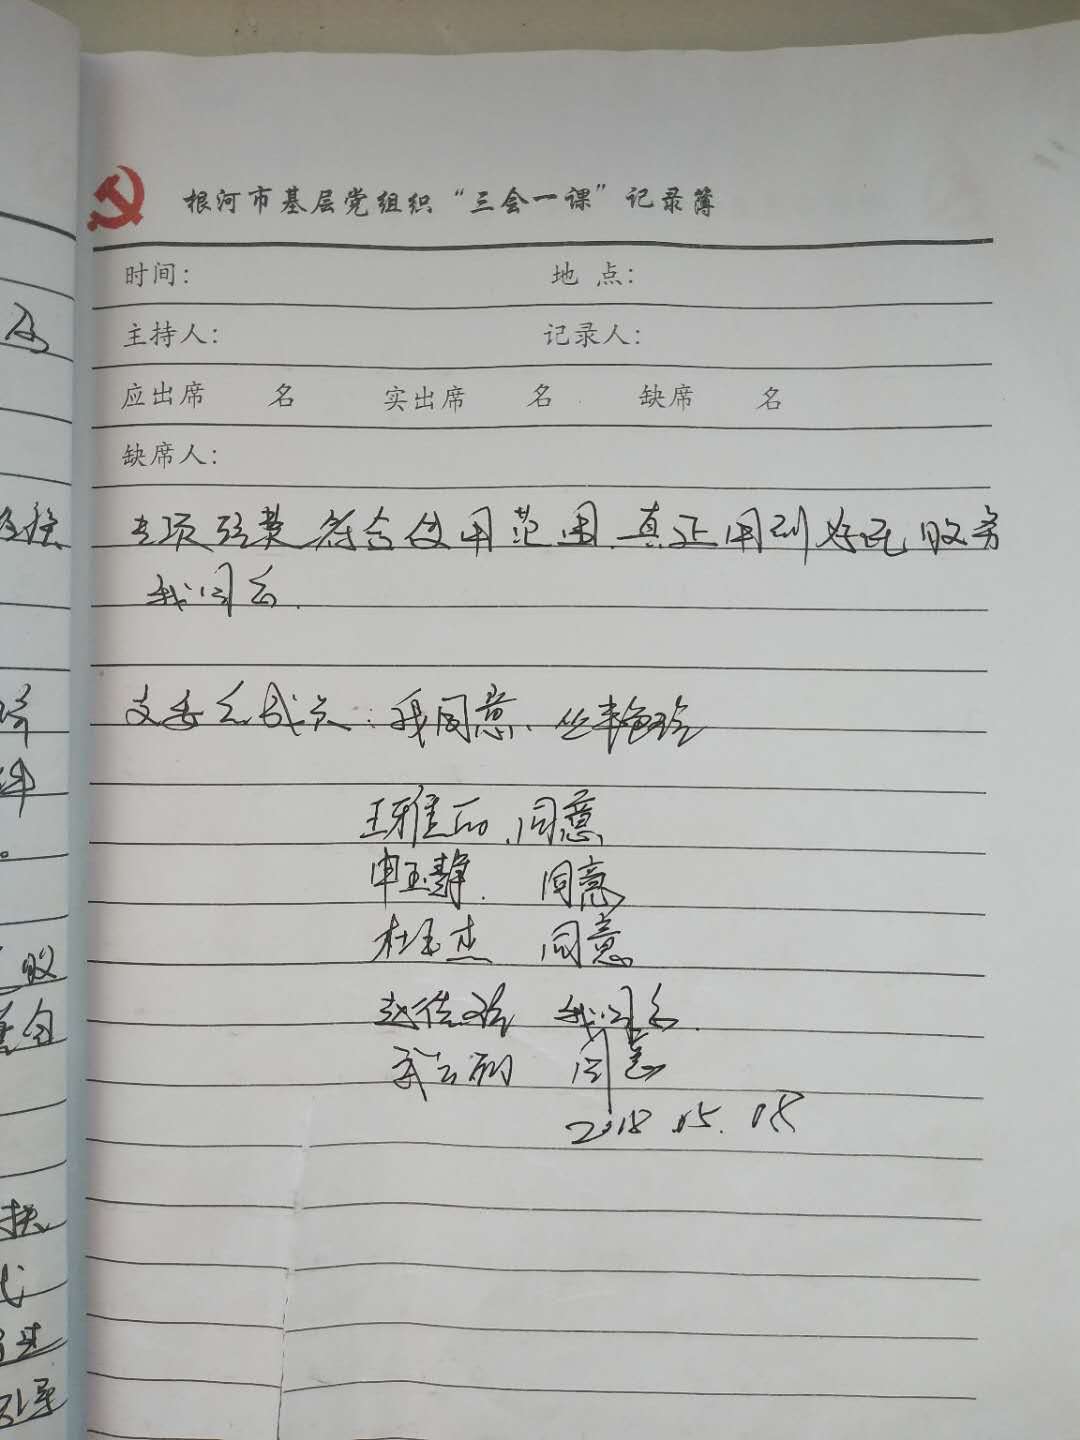 根河市基层党组织“三会一课”记录簿
时间： 地点：
主持人： 记录人：
应出席 名 实出席 名 缺席 名
缺席人：
专项经费符合使用范围、真正用到好 服务
我同意.
支委会成员：我同意、丛艳玲
王雅丽、同意
申玉静. 同意
杜玉杰 同意
赵佳 我同意.
武云丽 同意
2018.05.08
为
段
扶
进
引导